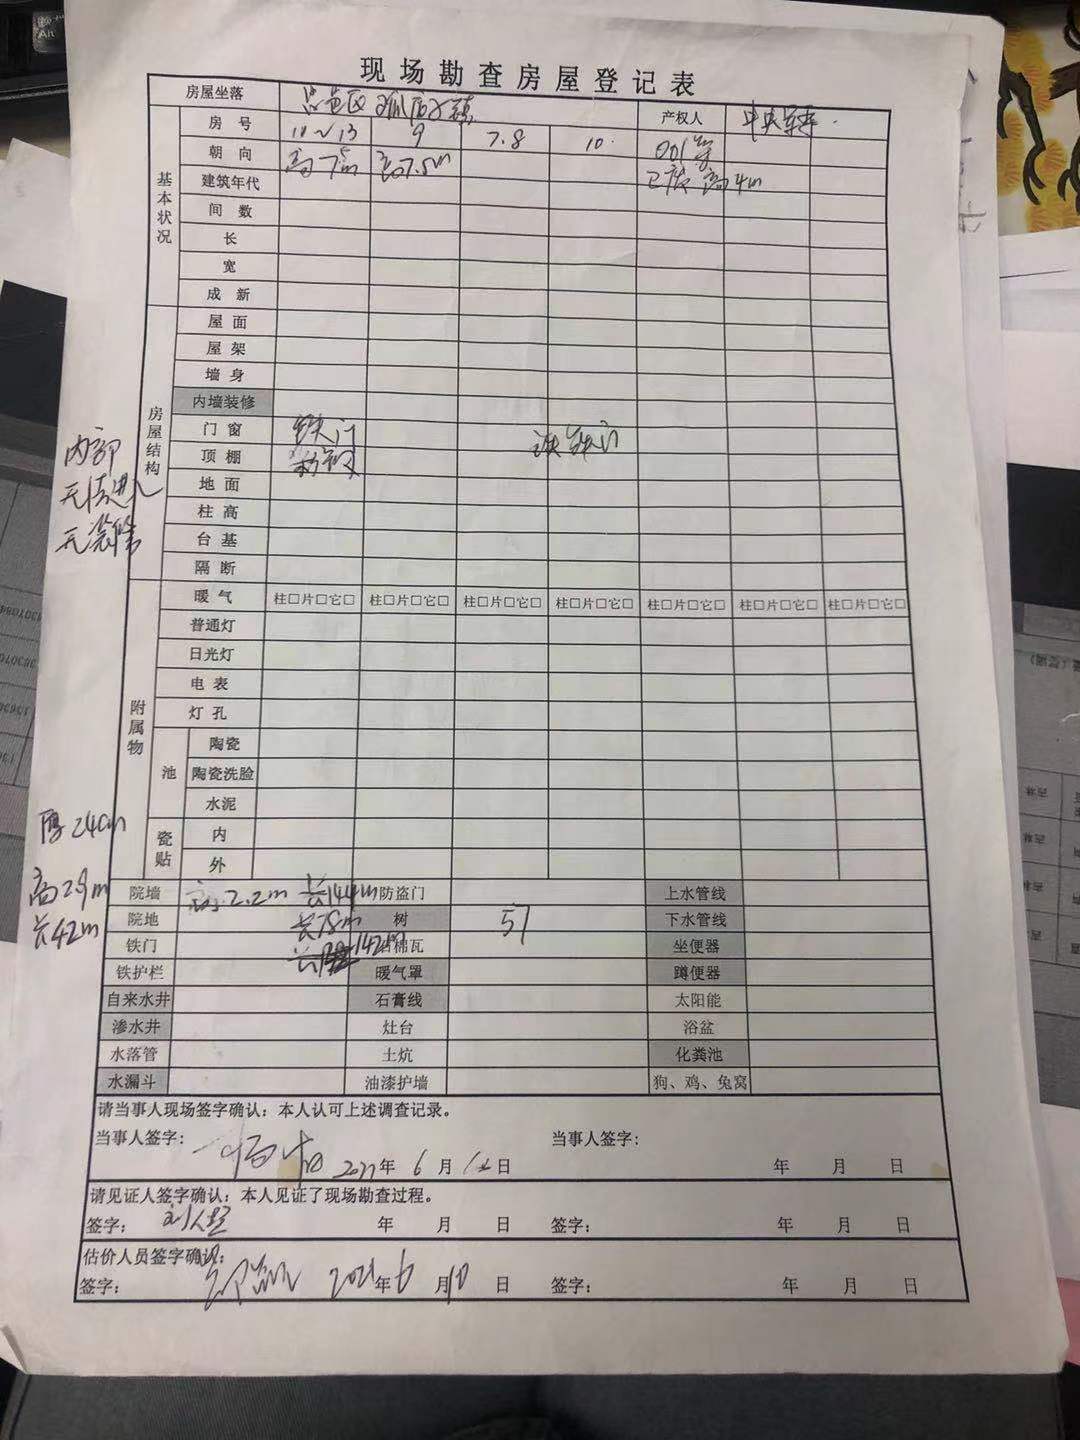 现场勘查房屋登记表
房屋坐落 产权人
基本状况
房号 11~13 9 7.8 10 001等
朝向 高7.5m 高7.5m
建筑年代 高4m
间数
长
宽
成新
房屋结构
屋面
屋架
墙身
内墙装修
门窗 铁门 铁门
顶棚
地面
柱高
台基
隔断
内部
无法进入
无装修
附属物
暖气 柱□片□它□ 柱□片□它□ 柱□片□它□ 柱□片□它□ 柱□片□它□ 柱□片□它□ 柱□片□它□
普通灯
日光灯
电表
灯孔
池 陶瓷
陶瓷洗脸
水泥
瓷贴 内
外
厚24cm
高2.9m
长42m
院墙 高2.2m 长144m 防盗门 上水管线
院地 长78m 树 51 下水管线
铁门 长142m 石棉瓦 坐便器
铁护栏 暖气罩 蹲便器
自来水井 石膏线 太阳能
渗水井 灶台 浴盆
水落管 土炕 化粪池
水漏斗 油漆护墙 狗、鸡、兔窝
请当事人现场签字确认：本人认可上述调查记录。
当事人签字： 2021年6月 日 当事人签字： 年 月 日
请见证人签字确认：本人见证了现场勘查过程。
签字： 年 月 日 签字： 年 月 日
估价人员签字确认：
签字： 2021年6月10日 签字： 年 月 日